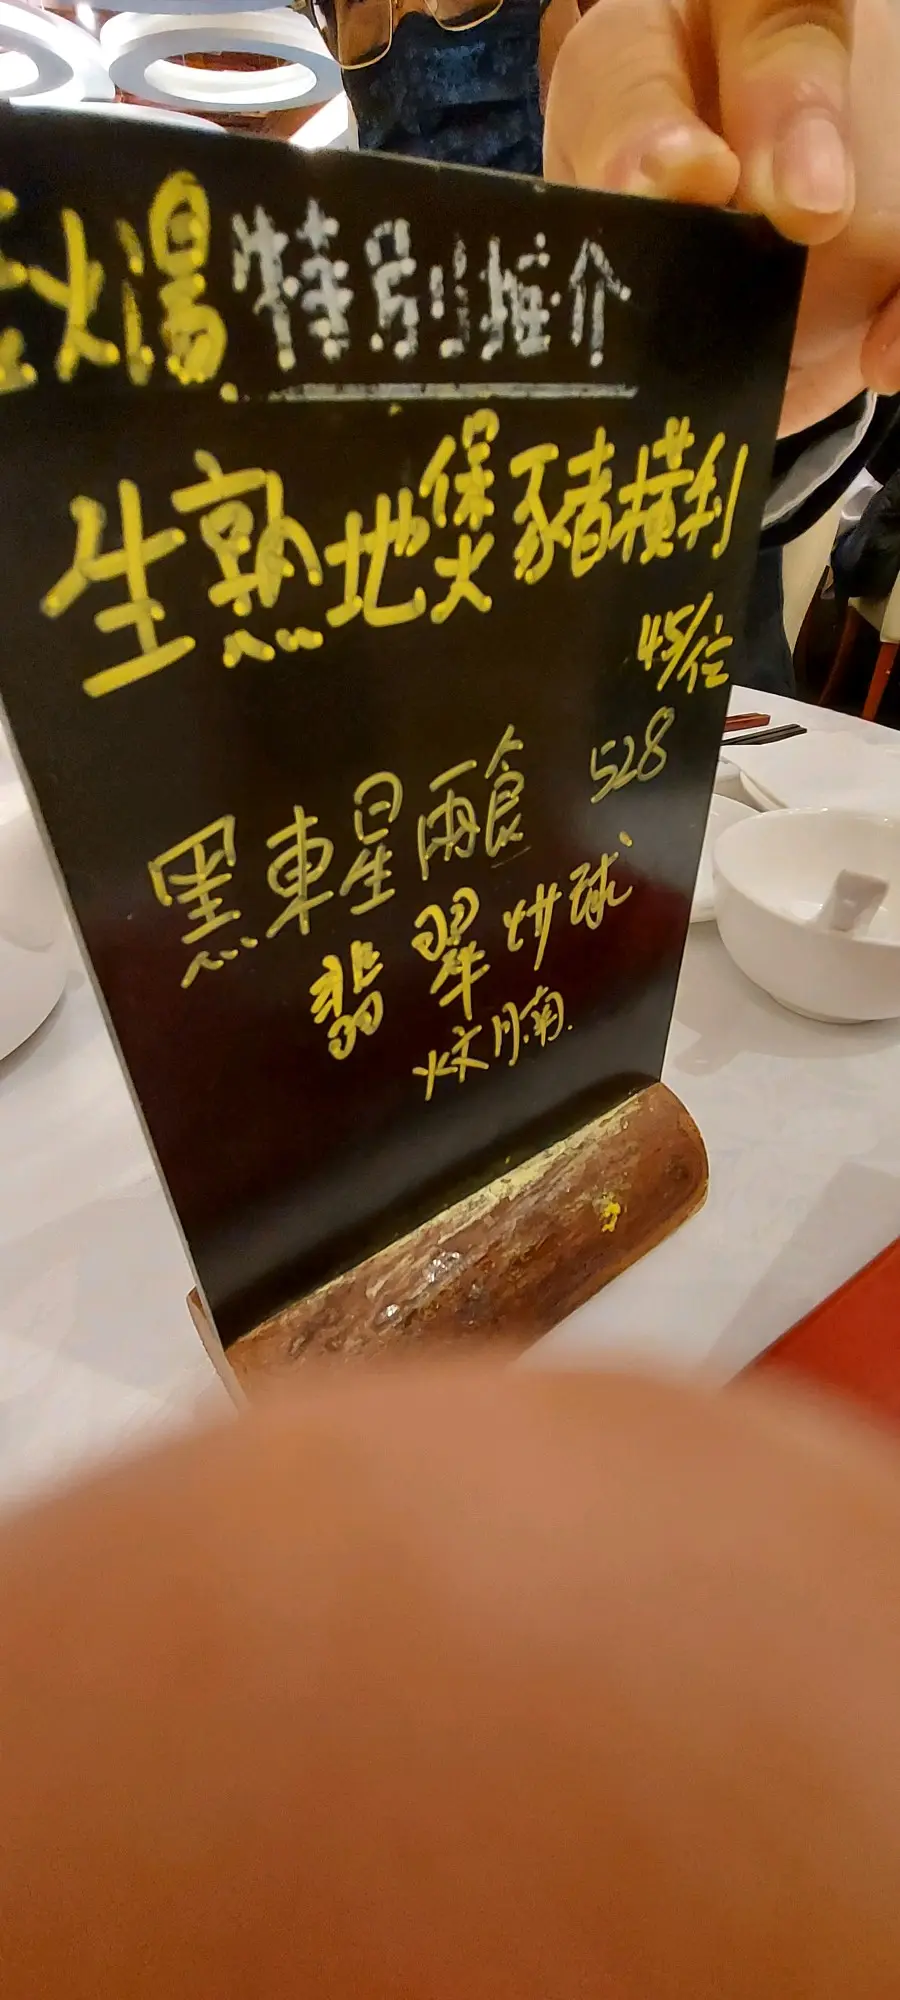 火湯 特別推介
生熟地煲豬橫利
45/位
黑東星兩食 528
翡翠炒球
炆腩